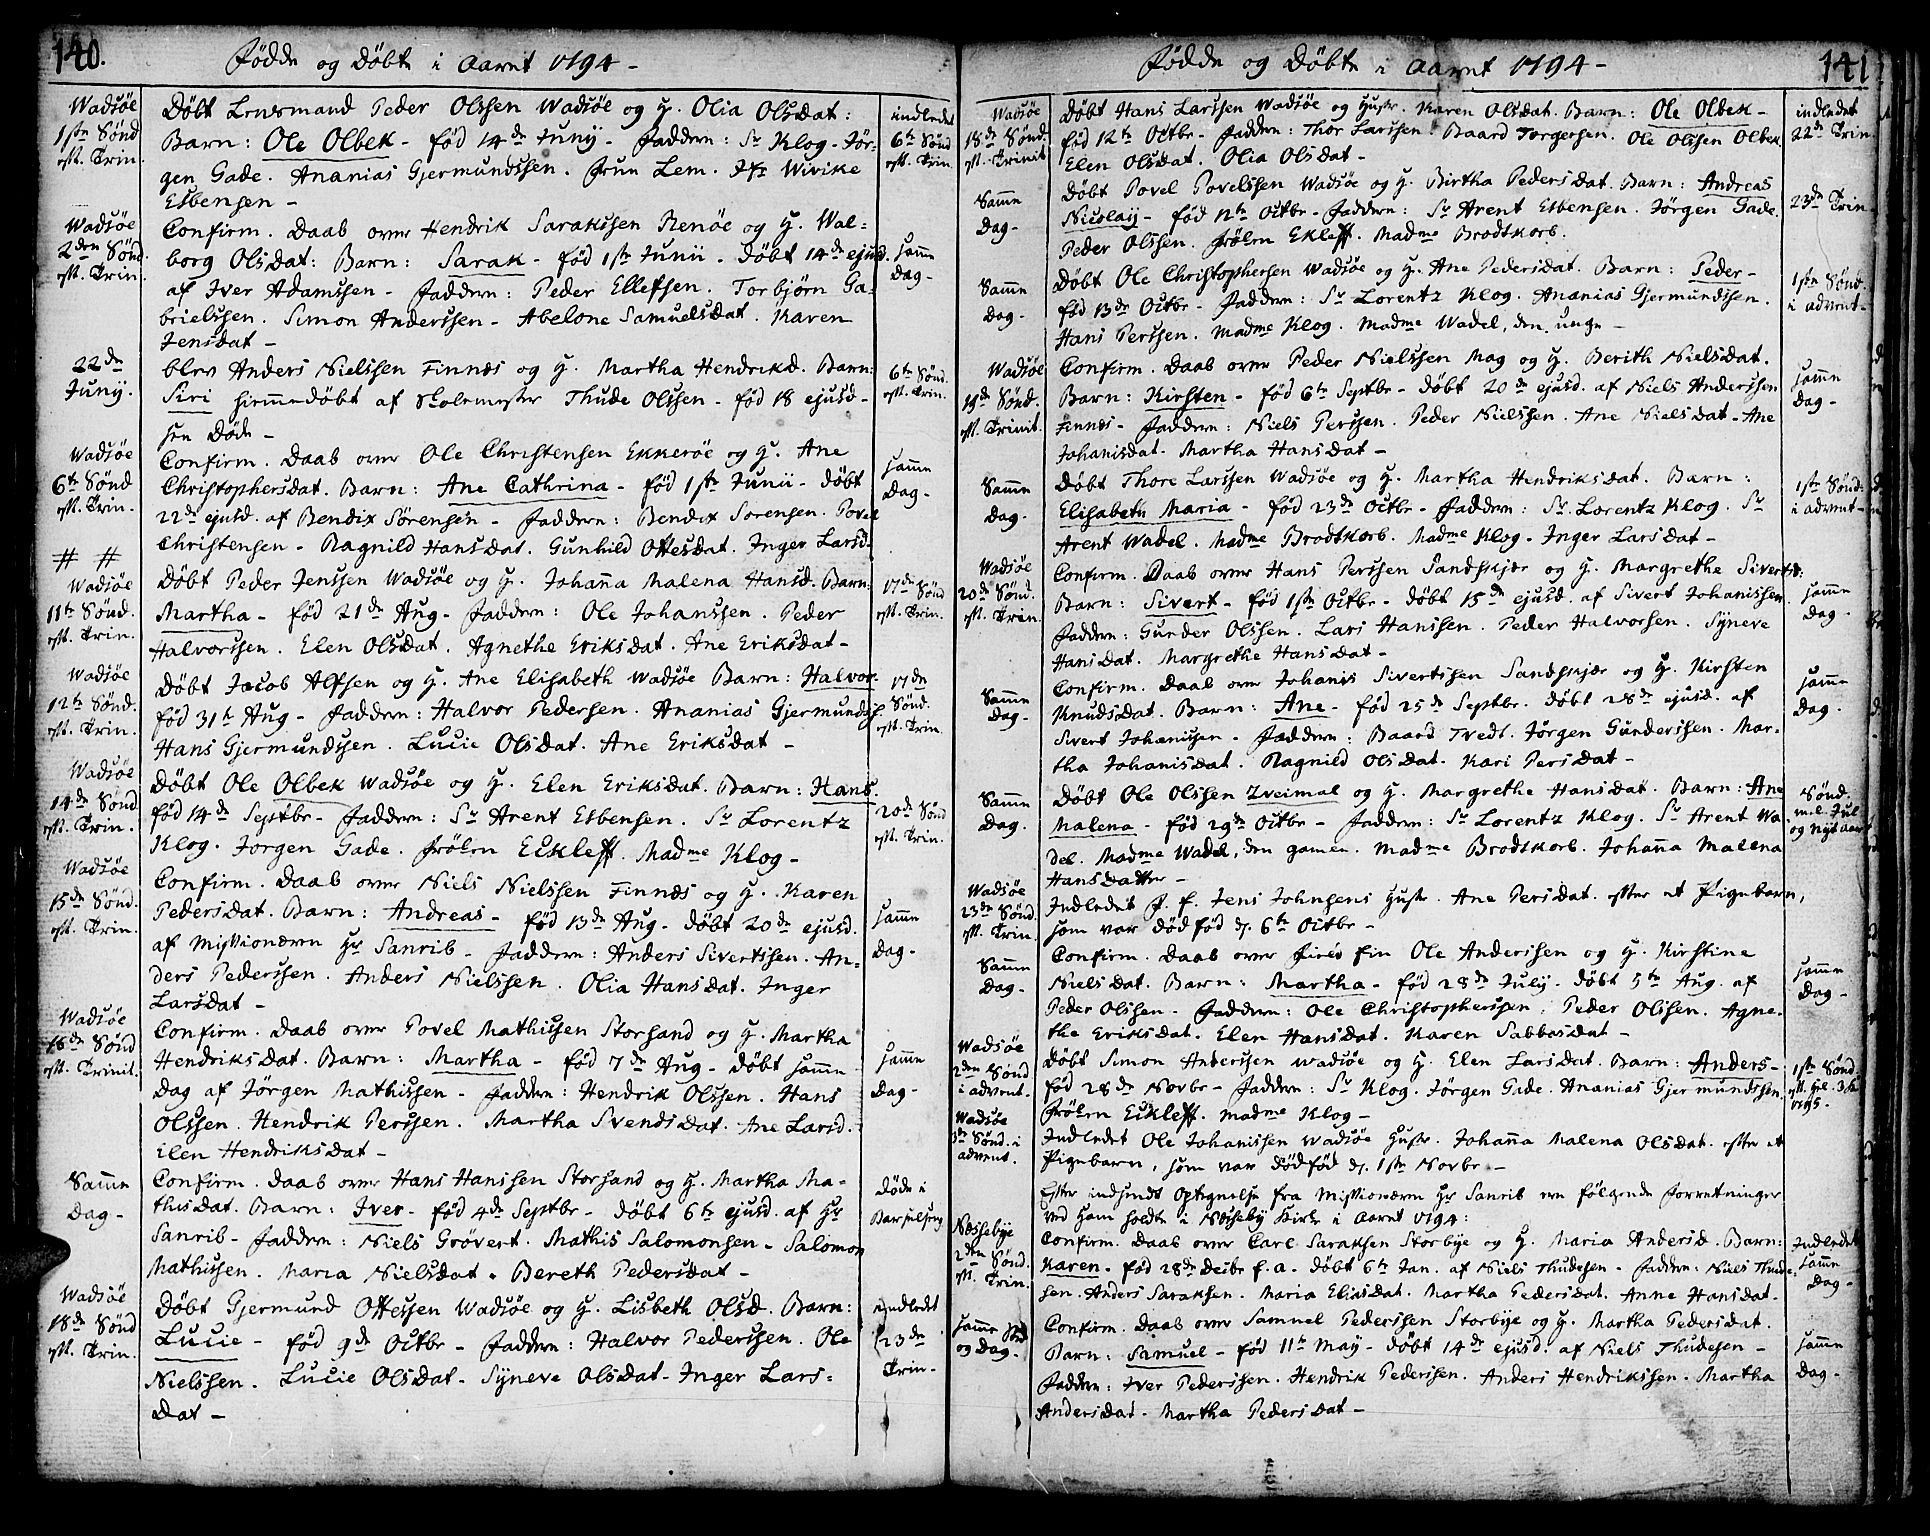 140.
Fødde og Døbte i Aaret 1794 -
Wadsøe
1ste Sønd
eft. Trin.
Døbt Lensmand Peder Olssen Wadsøe og H. Olia Olsdat:
Barn: Ole Olbek - fød 14de Junij - Faddere: Sr Klog - Jør-
gen Gade. Ananias Gjermundssen. Fruu Lem. Jfr Wivike
Esbensen -
indledet
6te Sønd
eft. Trin
Wadsøe
2den Sønd.
eft. Trin
Confirm. Daab over Hendrik Sarakssen Renøe og H. Wal=
borg Olsdat: Barn: Sarak - fød 1ste Junii - Døbt 14de ejusd.
af Iver Adamssen - Faddere: Peder Ellefsen. Torbjørn Ga=
brielssen. Simon Anderssen - Abelone Samuelsdat. Karen
Jensdat -
samme
Dag -
22de
Junij.
blev Anders Nielssen Finnæs og H. Martha Hendriksd. Barn:
Siri hiemmedøbt af Skolemester Thude Olssen - fød 18 ejusd -
sen Døde -
6te Sønd.
eft. Trin.
Wadsøe
6te Sønd
eft. Trin -
Confirm. Daab over Ole Christensen Ekkerøe og H. Ane
Christophersdat. Barn: Ane Cathrina - fød 1ste Junii - døbt
22de ejusd. af Bendix Sørensen - Faddere: Bendix Sørensen. Povel
Christensen - Ragnild Hansdat. Gunhild Ottesdat. Inger Larsd.
samme
Dag -
# #
Wadsøe
11te Sønd.
eft. Trin.
Døbt Peder Jenssen Wadsøe og H. Johanna Malena Hansd. Barn:
Martha - fød 21de Aug - Faddere: Ole Johanssen. Peder
Halvorssen. Elen Olsdat. Agnethe Eriksdat. Ane Eriksdat -
17de Sønd
eft. Trin.
Wadsøe
12te Sønd.
eft. Trin.
Døbt Jacob Alfsen og H. Ane Elisabeth Wadsøe Barn: Halvor -
fød 31te Aug - Faddere: Halvor Pedersen. Ananias Gjermundss.
Hans Gjermundssen. Lucie Olsdat. Ane Eriksdat -
17de
Sønd.
eft. Trin
Wadsøe
14de Sønd
eft. Trin.
Døbt Ole Olbek Wadsøe og H. Elen Eriksdat. Barn: Hans.
fød 14de Septbr - Faddere: Sr Arent Esbensen. Sr Lorentz
Klog. Jørgen Gade. Frølen Eckleff. Madme Klog -
20de Sønd
eft. Trin.
Wadsøe
15de Sønd.
eft. Trin.
Confirm. Daab over Niels Nielssen Finnæs og H. Karen
Pedersdat. Barn: Andreas - fød 13de Aug - døbt 20de ejusd.
af Missionæren Hr Sanrib - Faddere: Anders Sivertssen. An-
ders Pederssen. Anders Nielssen. Olia Hansdat. Inger
Larsdat -
samme
Dag -
Wadsøe
18de Sønd
eft. Trinit.
Confirm. Daab over Povel Mathissen Storsand og H. Martha
Hendriksdat. Barn: Martha - fød 7de Aug - døbt samme
Dag af Jørgen Mathissen - Faddere: Hendrik Olssen. Hans
Olssen. Hendrik Perssen. Martha Svendsdat. Ane Larsd.
Elen Hendriksdat -
samme
Dag -
Samme
Dag -
Confirm. Daab over Hans Hanssen Storsand og H. Martha Ma-
thisdat. Barn: Iver - fød 4de Septbr - døbt 6te ejusd. af Hr
Sanrib - Faddere: Niels Grøvert. Mathis Salomonsen - Salomon
Mathissen. Maria Nielsdat. Bereth Pedersdat -
Døde i
Barselseng
Wadsøe
18de Sønd
eft. Trin.
Døbt Gjermund Ottessen Wadsøe og H. Lisbeth Olsd. Barn:
Lucie - fød 9de Octbr - Faddere: Halvor Pederssen. Ole
Nielssen. Lucie Olsdat - Syneve Olsdat - Inger Lars=
dat -
indledet
23de
Trin -
141
Fødde og Døbte i Aaret 1794 -
Wadsøe
18de Sønd.
eft. Trinit
Døbt Hans Larssen Wadsøe og Hustr. Karen Olsdat. Barn: Ole Olbek -
fød 12te Octbr - Faddere: Thor Larssen. Baard Torgersen. Ole Olssen Olbek
Elen Olsdat. Olia Olsdat -
indledet
22de Trin -
Samme
Dag -
Døbt Povel Povelssen Wadsøe og H. Birtha Pedersdat. Barn: Andreas
Nicolaij - fød 12te Octbr - Faddere: Sr Arent Esbensen. Jørgen Gade.
Peder Olssen. Frølen Ekleff. Madme Brodtkorb.
23de Trin
Samme
Dag -
Døbt Ole Christophersen Wadsøe og H. Ane Pedersdat. Barn: Peder -
fød 13de Octbr - Faddere: Sr Lorentz Klog. Ananias Gjermundssen.
Hans Perssen. Madme Klog. Madme Wadel, den unge -
1ste Sønd.
i advent -
Wadsøe
19de Sønd.
eft. Trinit.
Confirm. Daab over Peder Nielssen Mag og H. Berith Nielsdat.
Barn: Kirsten - fød 6te Septbr - døbt 20de ejusd. af Niels Anderssen
Finnæs - Faddere: Niels Perssen. Peder Nielssen. Ane Nielsdat - Ane
Johanisdat. Martha Hansdat -
samme
Dag -
Samme
Dag -
Døbt Thore Larssen Wadsøe og H. Martha Hendriksdat. Barn:
Elisabeth Maria - fød 23de Octbr - Faddere: Sr Lorentz Klog. Sr
Arent Wadel. Madme Brodtkorb. Madme Klog - Inger Larsdat -
1ste Sønd.
i advent -
Wadsøe
20de Sønd.
eft. Trin.
Confirm. Daab over Hans Perssen Sandskjær og H. Margrethe Sivertsd:
Barn: Sivert - fød 1ste Octbr - døbt 15de ejusd. af Sivert Johanissen
Faddere: Gunder Olssen. Lars Hanssen. Peder Halvorsen. Syneve
Hansdat. Margrethe Hansdat -
samme
Dag -
Samme
Dag -
Confirm. Daab over Johanis Sivertssen Sandskjær og H. Kirsten
Knudsdat. Barn: Ane - fød 25de Septbr. døbt 28de ejusd. af
Sivert Johanissen - Faddere: Baard Tvedt. Jørgen Gunderssen. Mar-
tha Johanisdat. Ragnild Olsdat. Kari Persdat -
samme
Dag -
Samme
Dag.
Døbt Ole Olssen Tveimal og H. Margrethe Hansdat. Barn: Ane
Malena - fød 29de Octbr - Faddere: Sr Lorentz Klog. Sr Arent Wa
del. Madme Wadel, den gamle. Madme Brodtkorb. Johanna Malena
Hansdatter -
Sønd.
ml. Jul
og Nytaar
Wadsøe
23de Sønd
eft. Trin.
Indledet J. f. Jens Johnsens Hustr. Ane Persdat. efter et Pigebarn,
som var dødfød d. 6te Octbr -
Samme
Dag -
Confirm. Daab over Fin Ole Anderssen og H. Kirstine
Nielsdat. Barn: Martha - fød 28de July - døbt 5te Aug. af
Peder Olssen - Faddere: Ole Christopherssen. Peder Olssen. Agne-
the Eriksdat. Elen Hansdat. Karen Sabbasdat -
samme
Dag -
Wadsøe
2den Sønd
i advent.
Døbt Simon Anderssen Wadsøe og H. Elen Larsdat. Barn: Anders -
fød 28de Novbr - Faddere: Sr Klog. Jørgen Gade. Ananias Gjermundssen
Frølen Eckleff. Madme Klog -
1ste Sønd.
eft. Hel. 3 K
1795.
Wadsøe
3de Sønd. i
advent.
Indledet Ole Johanissen Wadsøe Hustr. Johanna Malena Olsdat. efter et
Pigebarn, som var dødfød d. 1ste Novbr -
Efter indsendt Optegnelse fra Missionæren Hr Sanrib ere følgende Forretninger
ved ham holdte i Næsseby Kirke i Aaret 1794:
Næssebye
2den Sønd.
eft. Trin.
Confirm. Daab over Carl Saraksen Storbye og H. Maria Andersd. Barn:
Karen - fød 28de Decbr f. a - døbt 6te Jan. af Niels Thudesen - Faddere: Niels Thude-
sen. Anders Saraksen. Maria Eliasdat. Martha Pedersdat. Anne Hansdat -
Indledet
samme
Dag -
samme Sted
og Dag -
Confirm. Daab over Samuel Pederssen Storbye og H. Martha Pedersdat.
Barn: Samuel - fød 11te May - døbt 14de ejusd. af Niels Thudesen -
Faddere: Iver Pederssen. Hendrik Pederssen. Anders Hendrikssen. Martha
Andersdat - Martha Pedersdat -
samme
Dag -